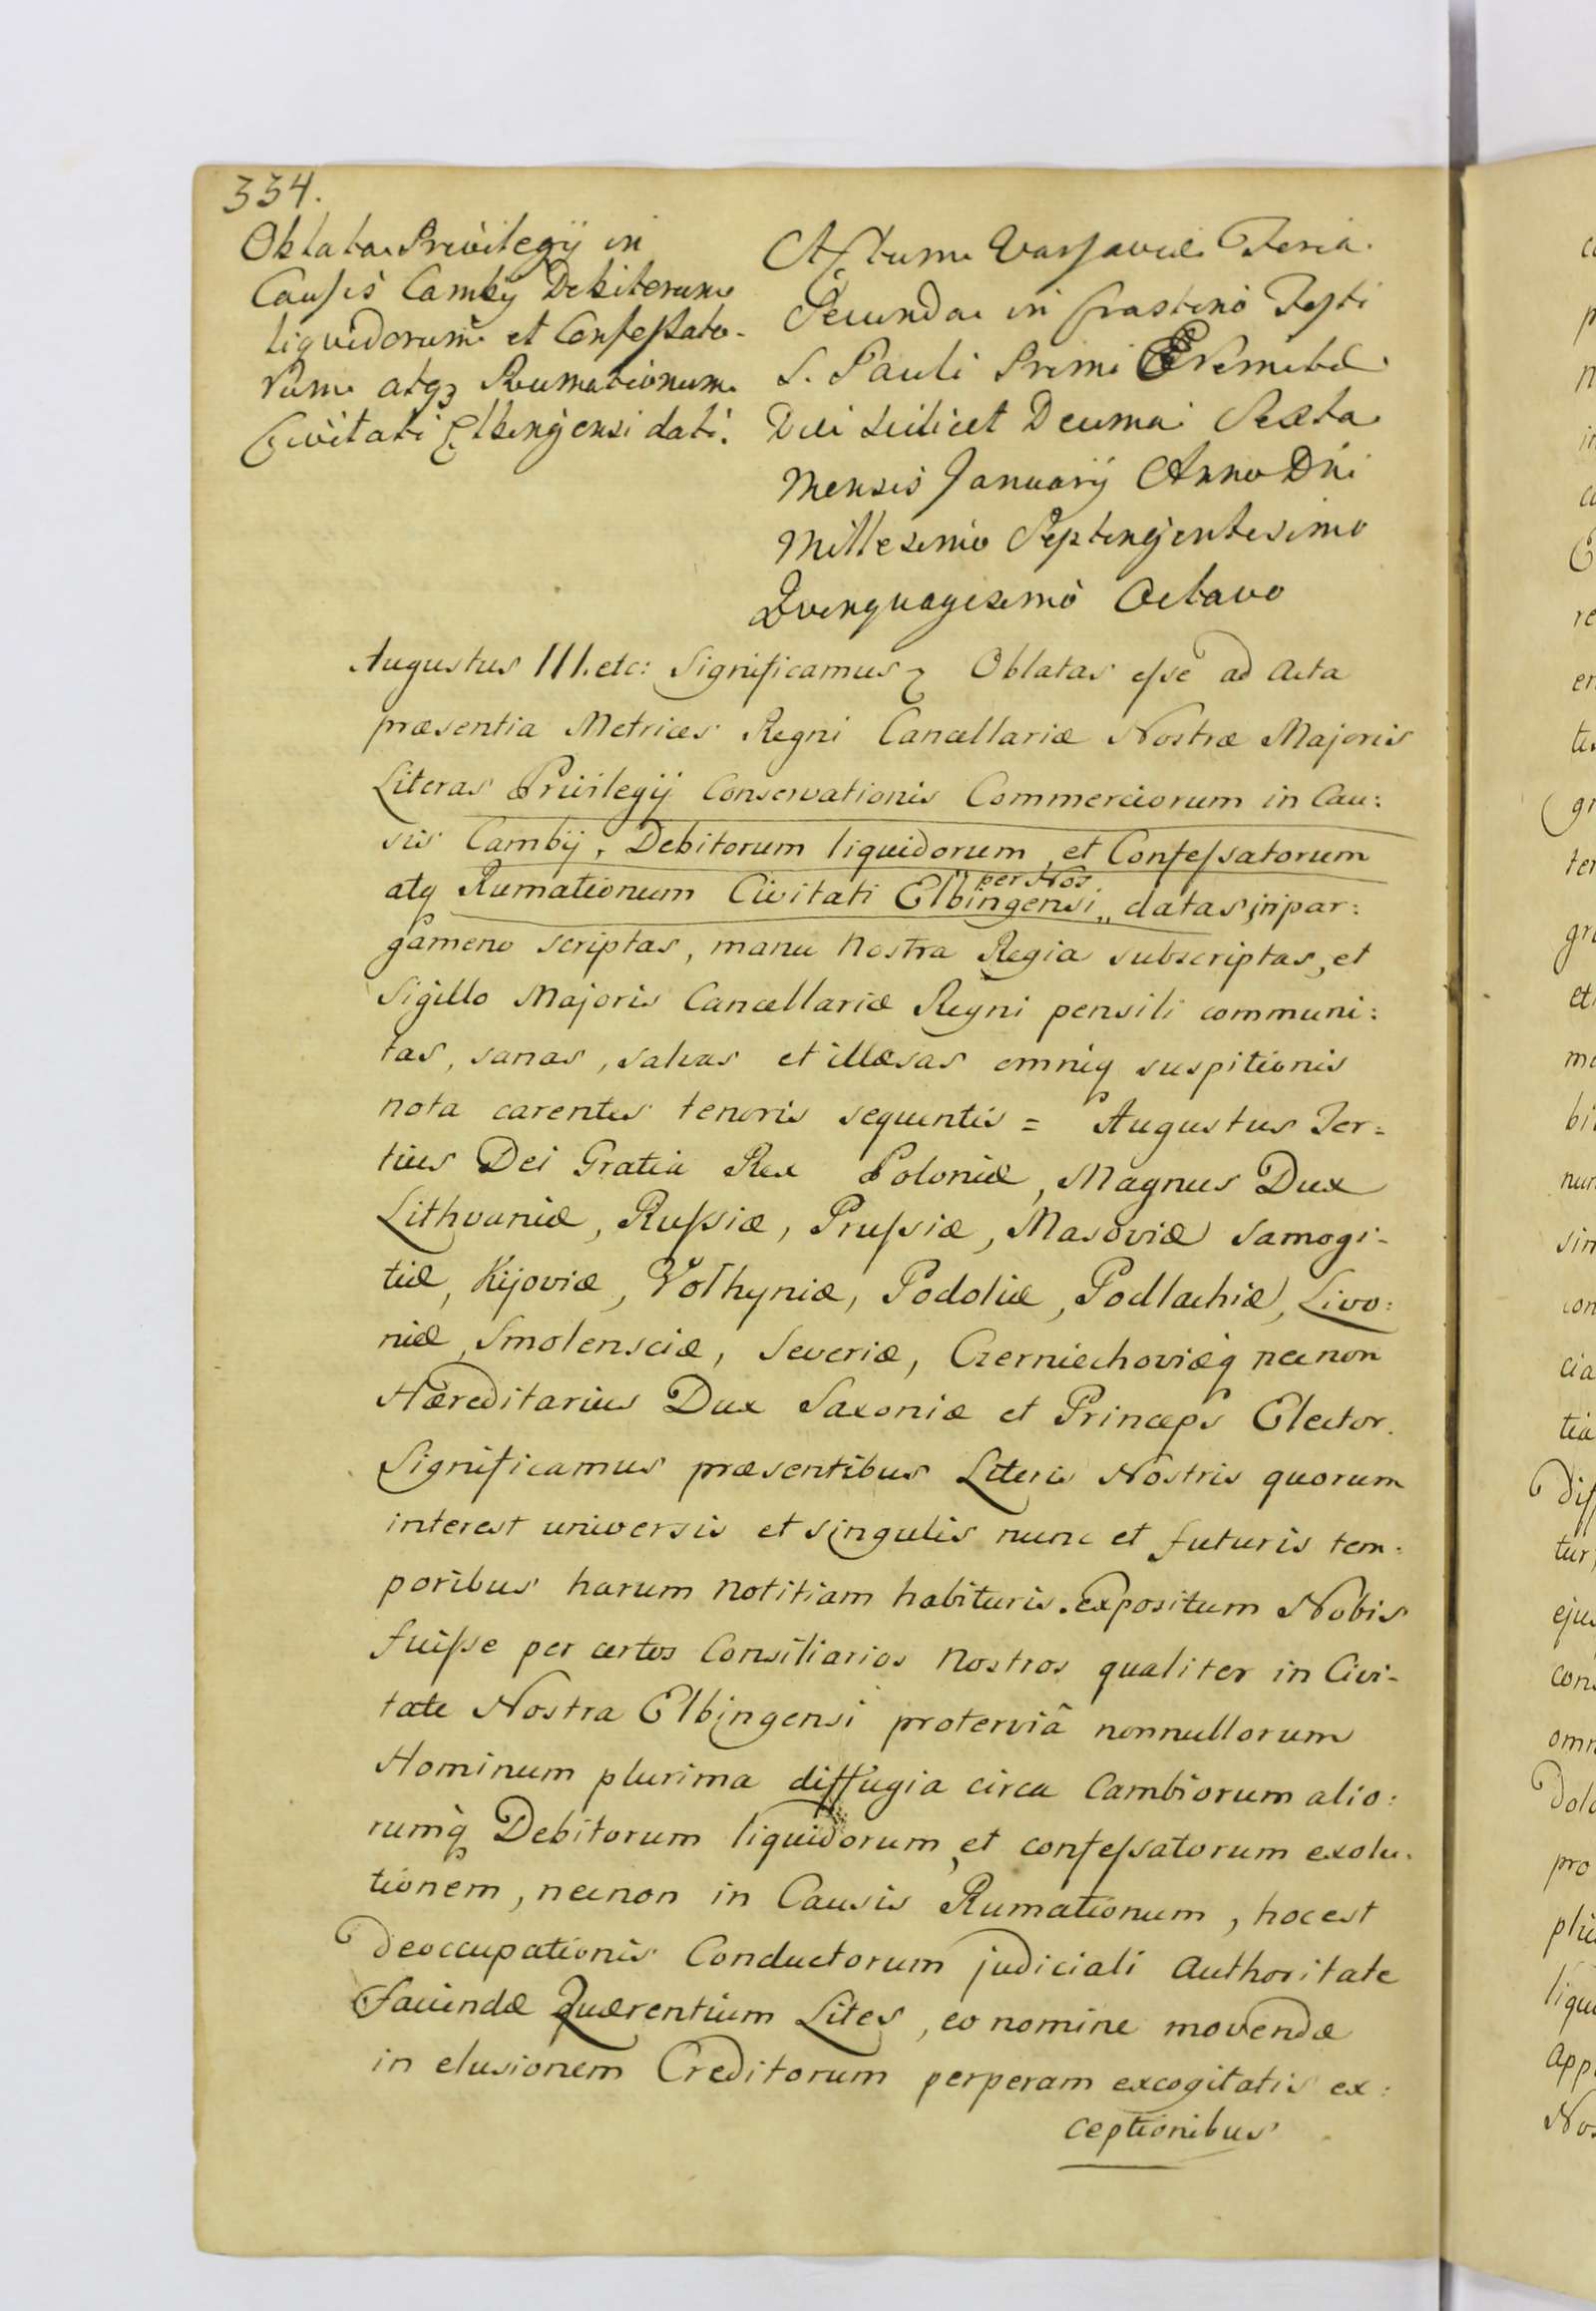 334.
Oblata Privilegij in
Causis Cambij Debitorum
liquidorum et Confessato-
rum atq Rumationum
Civitati Elbingensi dati.
Actum Varsaviæ Feria
Secunda in Crastino Festi
S. Pauli Primi Eremitæ
Die scilicet Decima Sexta
Mensis Januarij Anno Dni
Millesimo Septingentesimo
Quinquagesimo Octavo
Augustus III. etc: Significamus Oblatas esse ad Acta
præsentia Metrices Regni Cancellariæ Nostræ Majoris
Literas Privilegij Conservationis Commerciorum in Cau:
sis Cambij, Debitorum liquidorum, et Confessatorum
atq Rumationum Civitati Elbingensi „ per Nos datas, in par:
gameno scriptas, manu Nostra Regia subscriptas, et
Sigillo Majoris Cancellariæ Regni pensili communi:
tas, sanas, salvas et illæsas omniq suspitionis
nota carentes tenoris sequentis = Augustus Ter=
tius Dei Gratia Rex Poloniæ, Magnus Dux
Lithvaniæ, Russiæ, Prussiæ, Masoviæ Samogi-
tiæ, Kijoviæ, Volhyniæ, Podoliæ, Podlachiæ, Livo:
niæ, Smolensciæ, Severiæ, Czerniechoviæq necnon
Hæreditarius Dux Saxoniæ et Princeps Elector.
Significamus præsentibus Literis Nostris quorum
interest universis et singulis nunc et futuris tem:
poribus harum notitiam habituris. Expositum Nobis
fuisse per certos Consiliarios Nostros qualiter in Civi-
tate Nostra Elbingensi proterviâ nonnullorum
Hominum plurima diffugia circa Cambiorum alio:
rumq Debitorum liquidorum et confessatorum exolu-
tionem, necnon in Causis Rumationum, hoc est
deoccupationis Conductorum judiciali Authoritate
faciendæ Quærentium Lites, eo nomine movendæ
in elusionem Creditorum perperam excogitatis ex:
ceptionibus